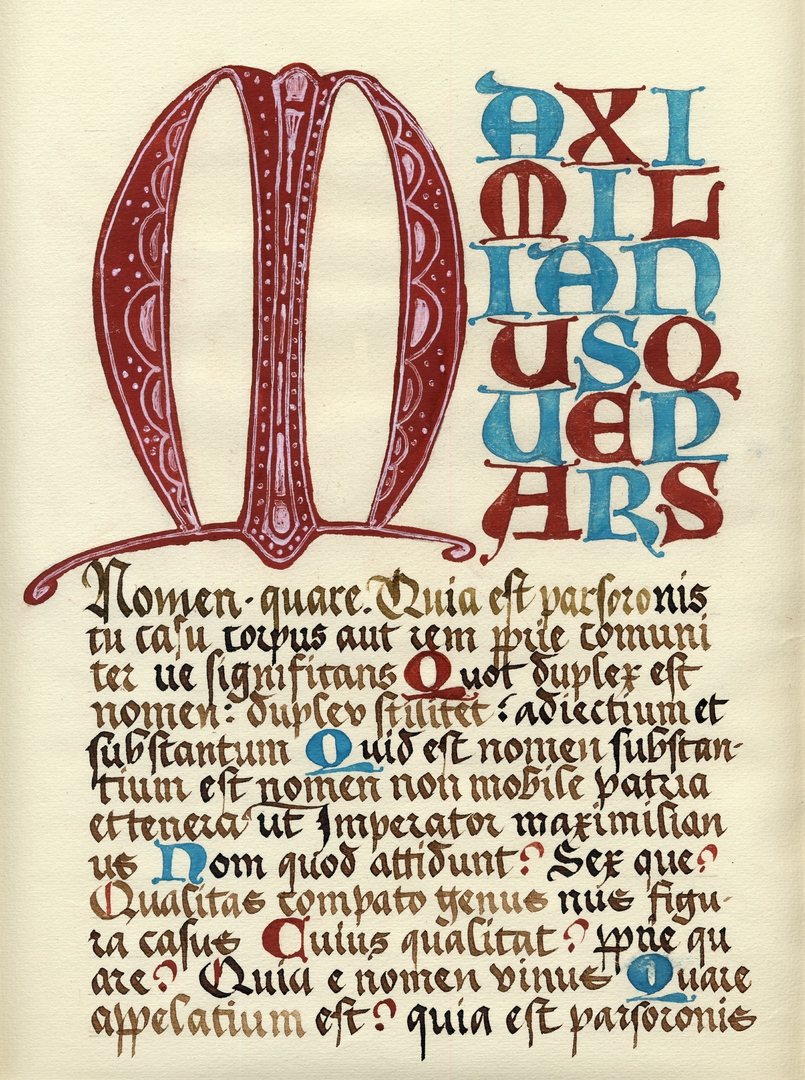 M AXI
MIL
IAN
USQ
UEP
ARS
Nomen · quare. Quia est parsoronis
tu casu corpus aut rem pprie comuni
ter ue significans Quot duplex est
nomen: duplev stilitet : adiectium et
substantum Quid est nomen substan-
tium est nomen non mobile patria
et tenera ut Imperator maximilian
us Nom quod attidunt? Sex que?
Qualitas compato genus nus figu-
ra casus Cuius qualitat? pprie qu
are? Quia e nomen vinus Quare
appelatium est? quia est parsoronis